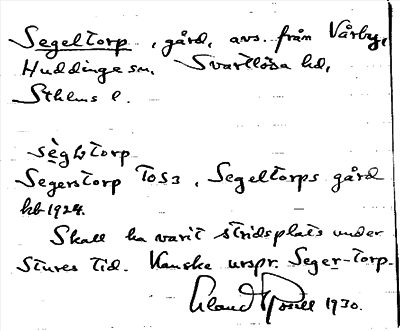 Segeltorp, gård, avs. från Vårby,
Huddinge sn. Svartlösa hd,
Sthlms l.
Segerstorp TOS3, Segeltorps gård
kb 1924.
Skall ha varit stridsplats under
Stures tid. Kanske urspr. Seger-torp.
1930.